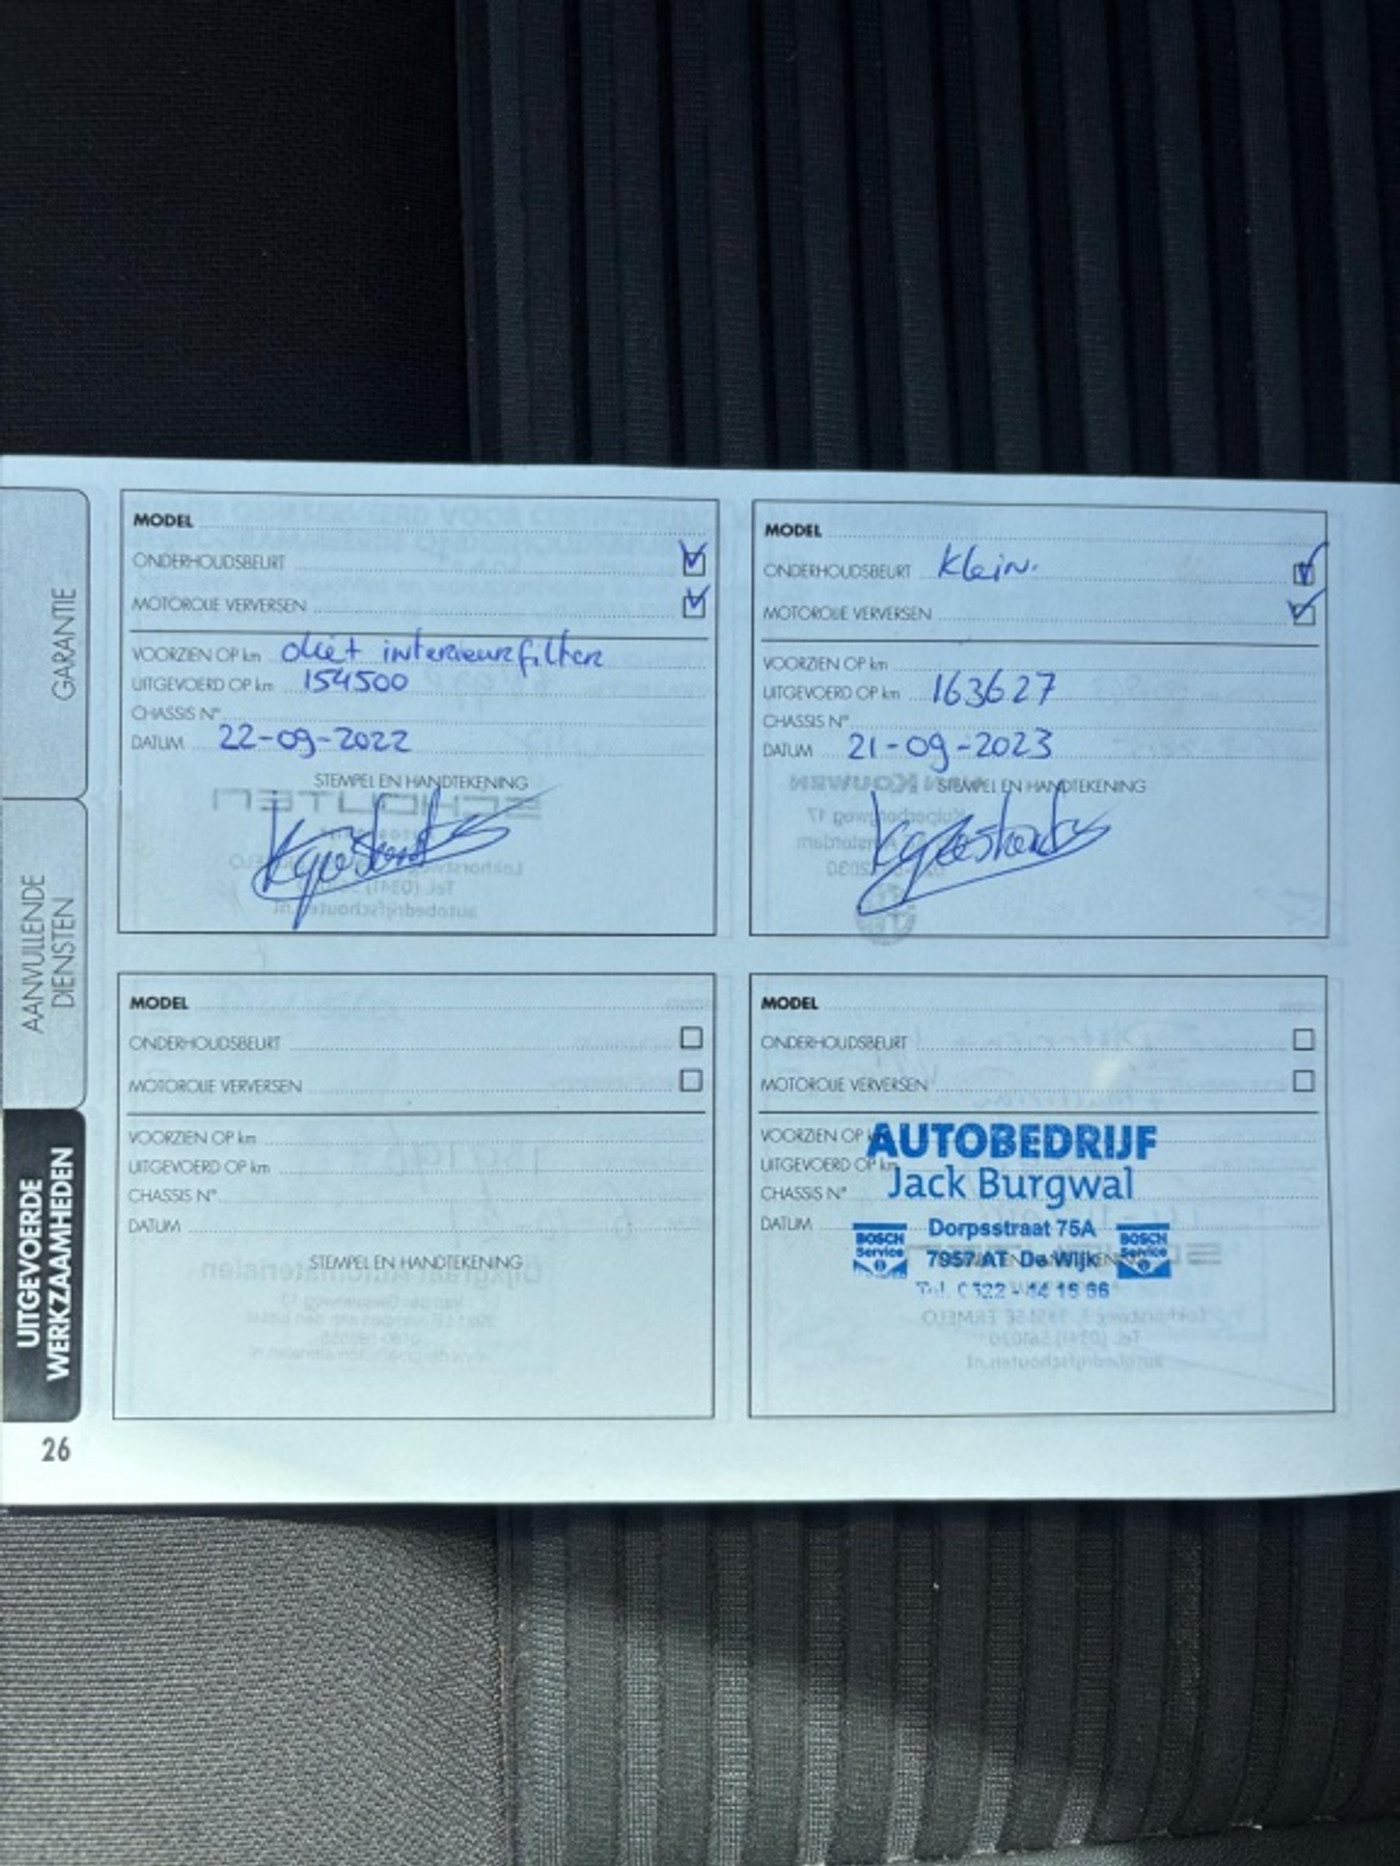 GARANTIE
AANVULLENDE
DIENSTEN
UITGEVOERDE
WERKZAAMHEDEN
26
MODEL
ONDERHOUDSBEURT
MOTOROLIE VERVERSEN
VOORZIEN OP km interieurfilter
UITGEVOERD OP km 154500
CHASSIS N°
DATUM 22-09-2022
STEMPEL EN HANDTEKENING
MODEL
ONDERHOUDSBEURT Klein.
MOTOROLIE VERVERSEN
VOORZIEN OP km
UITGEVOERD OP km 163627
CHASSIS N°
DATUM 21-09-2023
STEMPEL EN HANDTEKENING
MODEL
ONDERHOUDSBEURT
MOTOROLIE VERVERSEN
VOORZIEN OP km
UITGEVOERD OP km
CHASSIS N°
DATUM
STEMPEL EN HANDTEKENING
MODEL
ONDERHOUDSBEURT
MOTOROLIE VERVERSEN
VOORZIEN OP km
UITGEVOERD OP km
CHASSIS N°
DATUM
AUTOBEDRIJF
Jack Burgwal
Dorpsstraat 75A
BOSCH Service
7957 AT De Wijk
BOSCH Service
Tel.